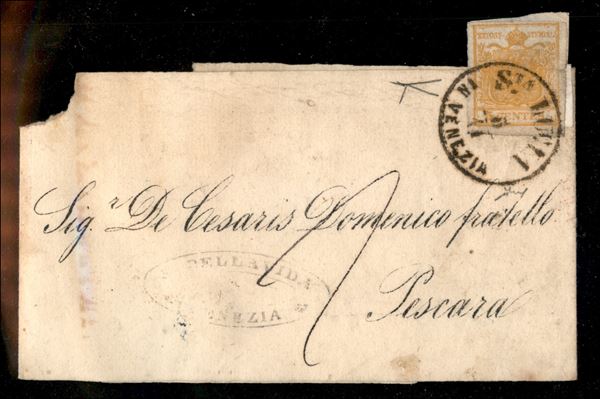 STA LUCIA
DI VENEZIA
CENTES
Sig.r De Cesaris Domenico fratello
7
DELLAVIDA
VENEZIA
Pescara